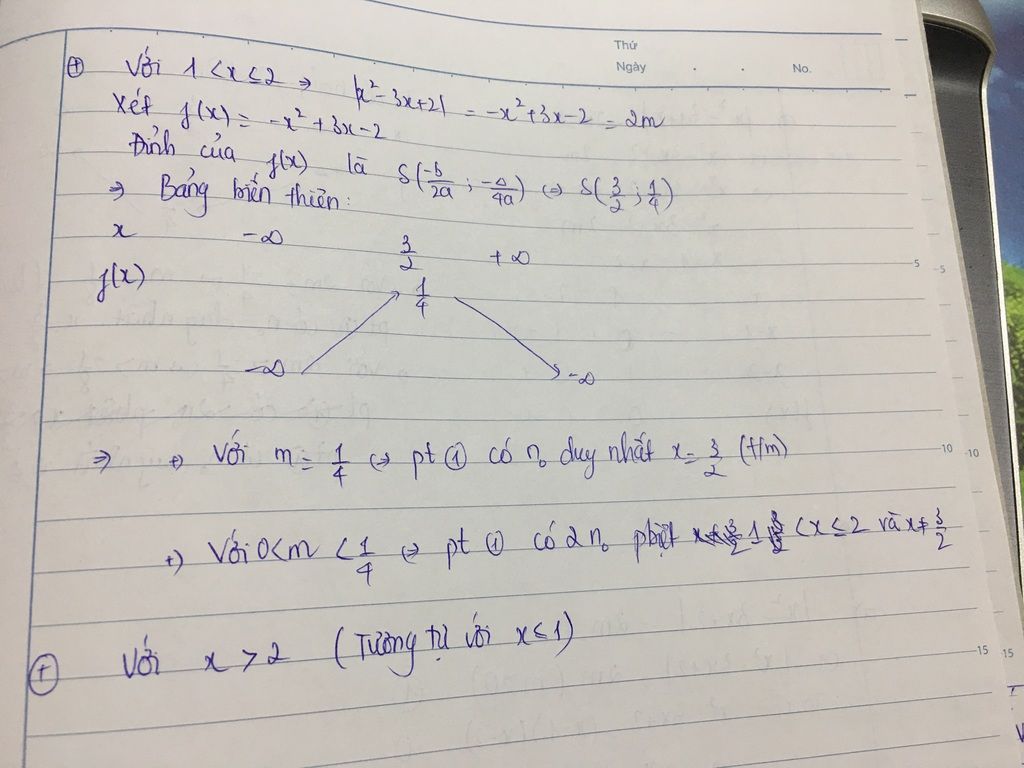 Thứ
Ngày . . No.
⊕ Với 1 < x ≤ 2 ⇒ |x² - 3x + 2| = -x² + 3x - 2 = 2m
Xét f(x) = -x² + 3x - 2
Đỉnh của f(x) là S(-b/2a ; -Δ/4a) ⇔ S(3/2 ; 1/4)
⇒ Bảng biến thiên:
x -∞ 3/2 +∞
f(x) 1/4
-∞ -∞
⇒ +) Với m = 1/4 ⇔ pt ① có n₀ duy nhất x = 3/2 (t/m)
+) Với 0 < m < 1/4 ⇔ pt ① có 2 n₀ pbiệt 1 < x ≤ 2 và x ≠ 3/2
⊕ Với x > 2 (Tương tự với x ≤ 1)
5 5
10 10
15 15